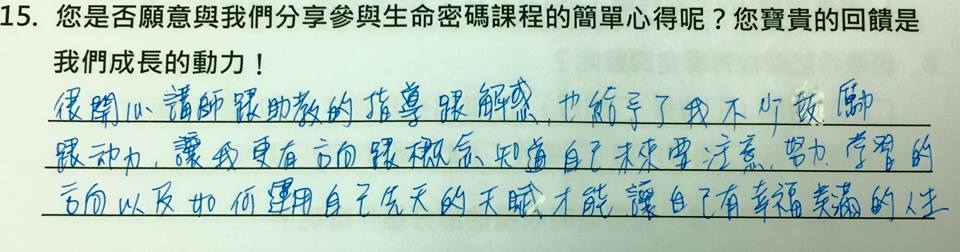 15. 您是否願意與我們分享參與生命密碼課程的簡單心得呢？您寶貴的回饋是
我們成長的動力！
很開心講師跟助教的指導跟解惑，也給予了我不少鼓勵
跟动力，讓我更有方向跟概念，知道自己未來要注意，努力，學習的
方向以及如何運用自己先天的天賦，才能讓自己有幸福美滿的人生